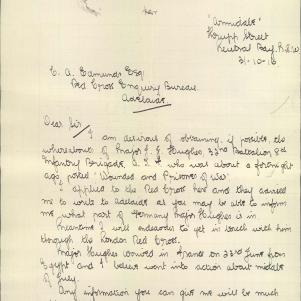 "Armidale"
Krupp Street
Neutral Bay. N.S.W
31-10-16
C. A. Edmunds Esq.
Red Cross Enquiry Bureau.
Adelaide
Dear Sir
I am desirous of obtaining, if possible, the
whereabouts of Major J. J. Hughes, 32nd Battalion, 8th
Infantry Brigade, A.I.F who was about a fortnight
ago, posted "Wounded and Prisoner of War"
I applied to the Red Cross here and they advised
me to write to Adelaide as you may be able to inform
me what part of Germany Major Hughes is in
Meantime I will endeavour to get in touch with him
through the London Red Cross.
Major Hughes arrived in France on 23rd June from
Egypt and I believe went into action about middle
of July.
Any information you can give me will be much